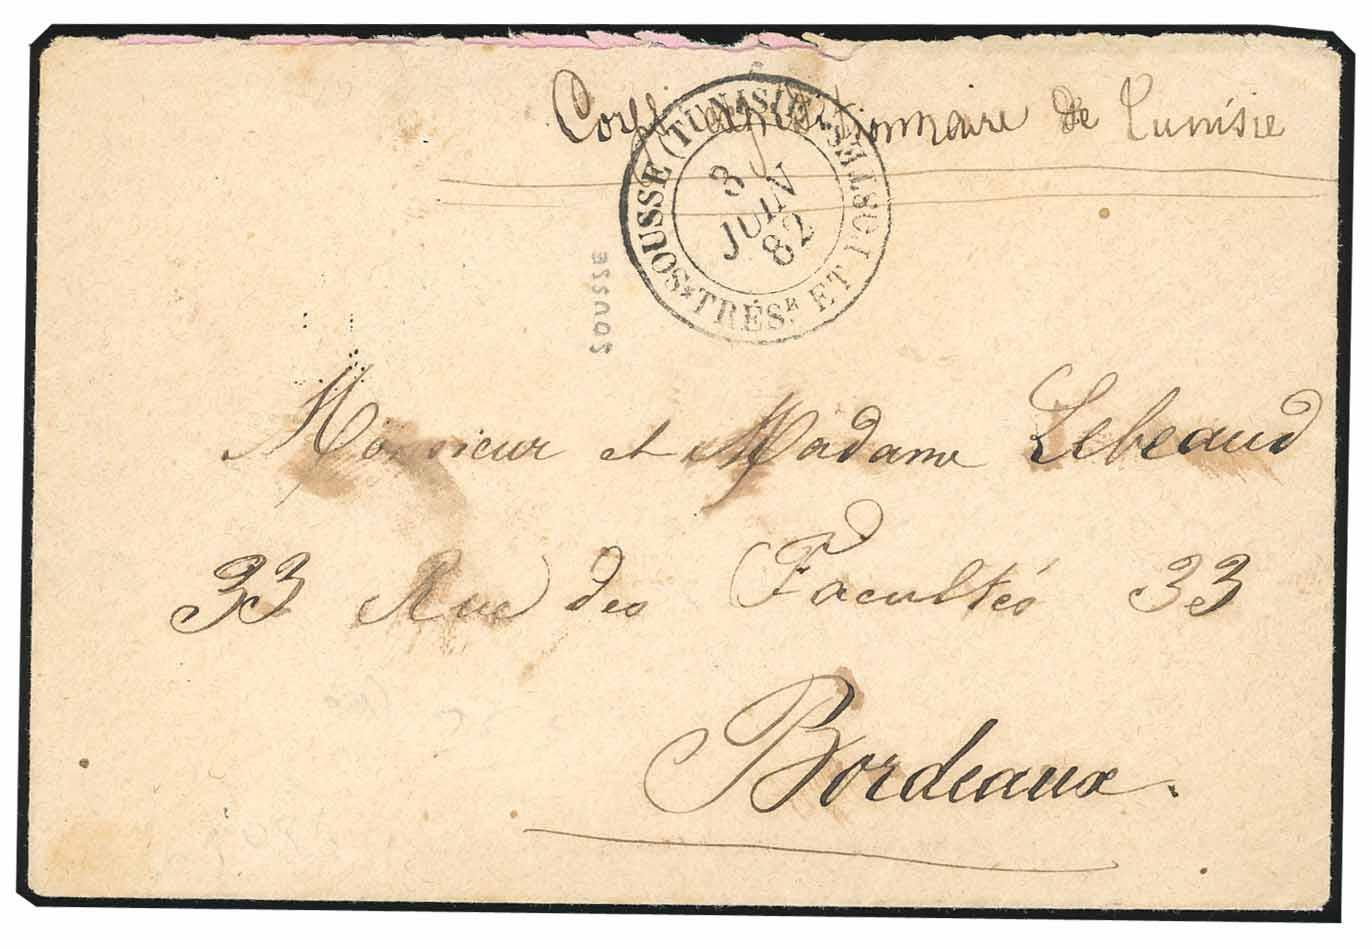 Corps expéditionnaire de Tunisie
SOUSSE (TUNISIE) * TRÉS.R ET POSTES *
3
JUIN
82
SOUSSE
Monsieur et Madame Lebeaud
33 Rue des Facultés 33
Bordeaux.